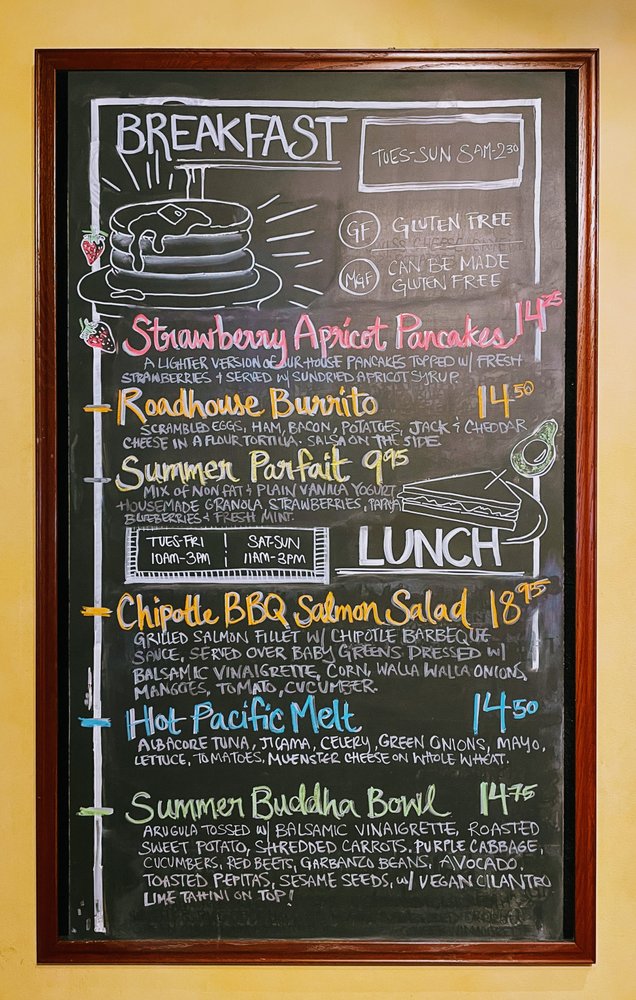 BREAKFAST
TUES-SUN 8AM-2:30
GF GLUTEN FREE
MGF CAN BE MADE
GLUTEN FREE
Strawberry Apricot Pancakes 14 25
A LIGHTER VERSION OF OUR HOUSE PANCAKES TOPPED W/ FRESH
STRAWBERRIES & SERVED W/ SUNDRIED APRICOT SYRUP.
Roadhouse Burrito 14 50
SCRAMBLED EGGS, HAM, BACON, POTATOES, JACK & CHEDDAR
CHEESE IN A FLOUR TORTILLA. SALSA ON THE SIDE.
Summer Parfait 9 95
MIX OF NON FAT & PLAIN VANILLA YOGURT,
HOUSEMADE GRANOLA, STRAWBERRIES, PAPAYA
BLUEBERRIES & FRESH MINT.
TUES-FRI
10AM-3PM
SAT-SUN
11AM-3PM
LUNCH
Chipotle BBQ Salmon Salad 18 95
GRILLED SALMON FILLET W/ CHIPOTLE BARBEQUE
SAUCE, SERVED OVER BABY GREENS DRESSED W/
BALSAMIC VINAIGRETTE, CORN, WALLA WALLA ONIONS,
MANGOES, TOMATO, CUCUMBER.
Hot Pacific Melt 14 50
ALBACORE TUNA, JICAMA, CELERY, GREEN ONIONS, MAYO,
LETTUCE, TOMATOES, MUENSTER CHEESE ON WHOLE WHEAT.
Summer Buddha Bowl 14 75
ARUGULA TOSSED W/ BALSAMIC VINAIGRETTE, ROASTED
SWEET POTATO, SHREDDED CARROTS, PURPLE CABBAGE,
CUCUMBERS, RED BEETS, GARBANZO BEANS, AVOCADO,
TOASTED PEPITAS, SESAME SEEDS, W/ VEGAN CILANTRO
LIME TAHINI ON TOP!